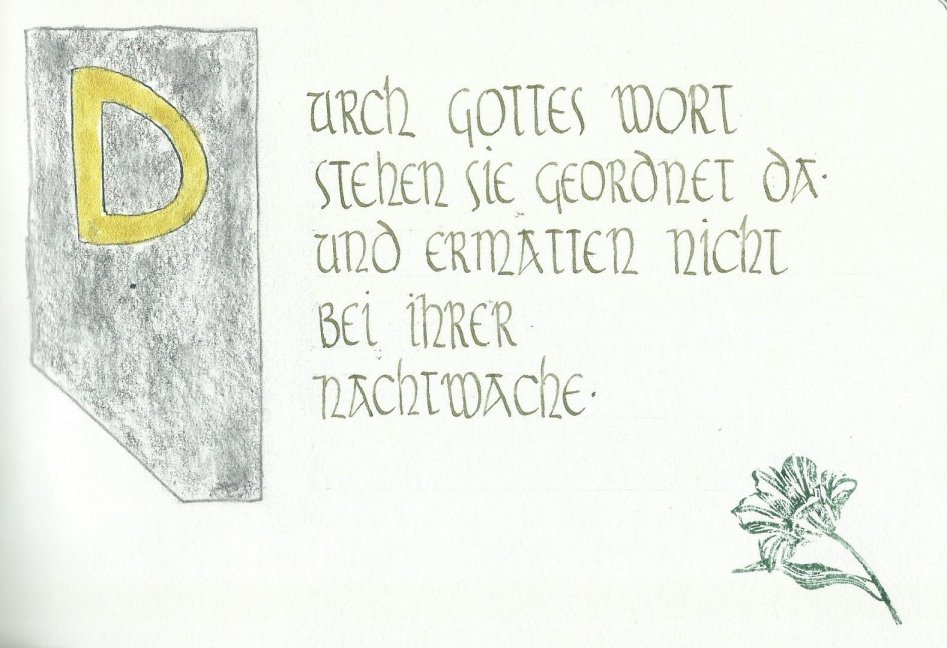 DURCH GOTTES WORT
STEHEN SIE GEORDNET DA·
UND ERMATTEN NICHT
BEI IHRER
NACHTWACHE·